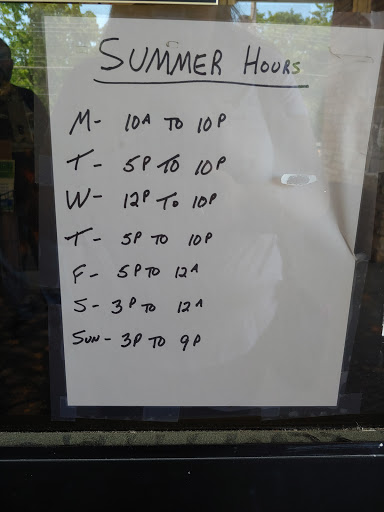 SUMMER HOURS
M- 10A TO 10P
T- 5P TO 10P
W- 12P TO 10P
T- 5P TO 10P
F- 5P TO 12A
S- 3P TO 12A
SUN- 3P TO 9P